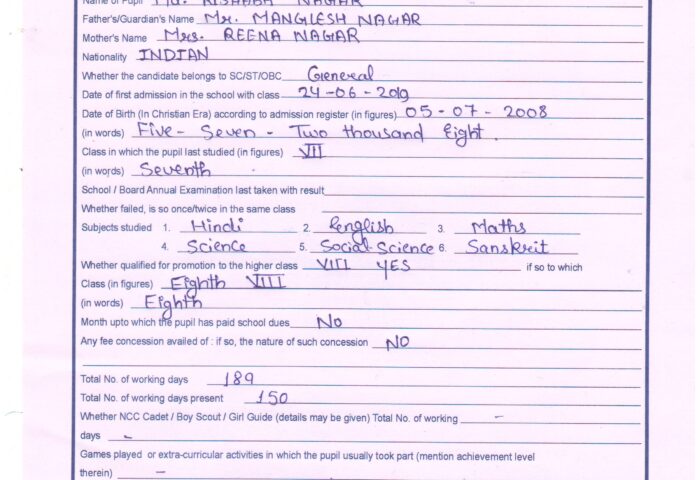 Name of Pupil Md. RISHABH NAGAR
Father's/Guardian's Name Mr. MANGLESH NAGAR
Mother's Name Mrs. REENA NAGAR
Nationality INDIAN
Whether the candidate belongs to SC/ST/OBC General
Date of first admission in the school with class 24-06-2019
Date of Birth (In Christian Era) according to admission register (in figures) 05-07-2008
(in words) Five - Seven - Two thousand Eight.
Class in which the pupil last studied (in figures) VII
(in words) Seventh
School / Board Annual Examination last taken with result
Whether failed, is so once/twice in the same class
Subjects studied 1. Hindi 2. English 3. Maths
4. Science 5. Social Science 6. Sanskrit
Whether qualified for promotion to the higher class VIII YES if so to which
Class (in figures) Eighth VIII
(in words) Eighth
Month upto which the pupil has paid school dues No
Any fee concession availed of : if so, the nature of such concession NO
Total No. of working days 189
Total No. of working days present 150
Whether NCC Cadet / Boy Scout / Girl Guide (details may be given) Total No. of working –
days –
Games played or extra-curricular activities in which the pupil usually took part (mention achievement level
therein) –